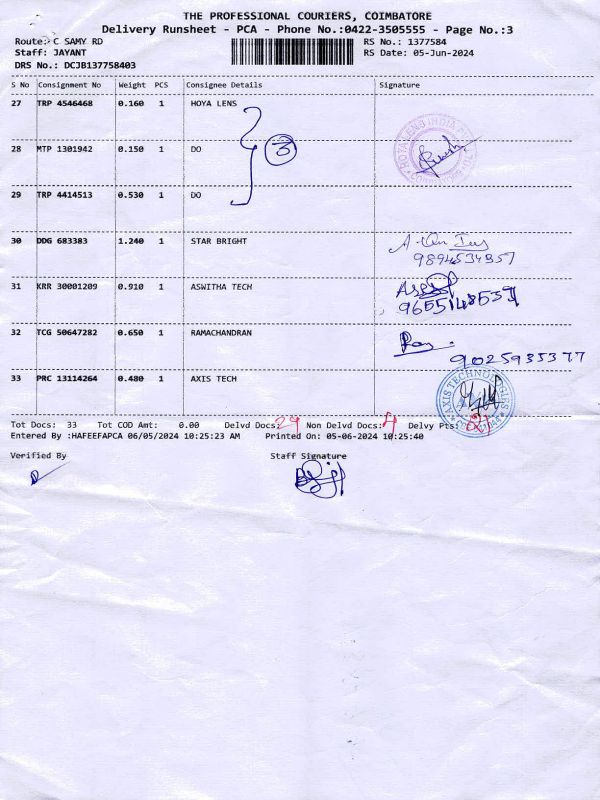 THE PROFESSIONAL COURIERS, COIMBATORE
Delivery Runsheet - PCA - Phone No.:0422-3505555 - Page No.:3
Route:- C SAMY RD RS No.: 1377584
Staff: JAYANT RS Date: 05-Jun-2024
DRS No.: DCJB137758403
S No Consignment No Weight PCS Consignee Details Signature
27 TRP 4546468 0.160 1 HOYA LENS
3
28 MTP 1301942 0.150 1 DO
HOYA LENS INDIA
29 TRP 4414513 0.530 1 DO
30 DDG 683383 1.240 1 STAR BRIGHT
9894534357
31 KRR 30001209 0.910 1 ASWITHA TECH
32 TCG 50647282 0.650 1 RAMACHANDRAN
9025935377
33 PRC 13114264 0.480 1 AXIS TECH
AXIS TECHNOLOGIES
Tot Docs: 33 Tot COD Amt: 0.00 Delvd Docs: 29 Non Delvd Docs: 4 Delvy Pts:
Entered By :HAFEEFAPCA 06/05/2024 10:25:23 AM Printed On: 05-06-2024 10:25:40
Verified By Staff Signature